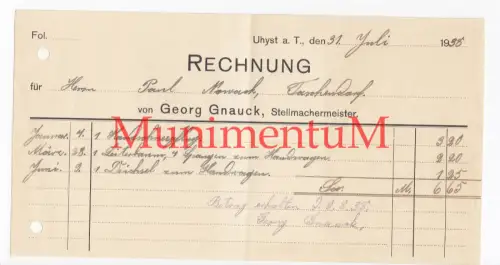 Fol.
Uhyst a. T., den 31. Juli 1935
RECHNUNG
für Herrn Paul Nowack, Taschendorf.
von Georg Gnauck, Stellmachermeister.
MunimentuM
Januar 4. 1 3 20
März 28. 1 4 zum Handwagen 2 20
Juni 2 1 Deichsel zum Handwagen. 1 25
Sa. M. 6 65
Betrag erhalten
Georg Gnauck.